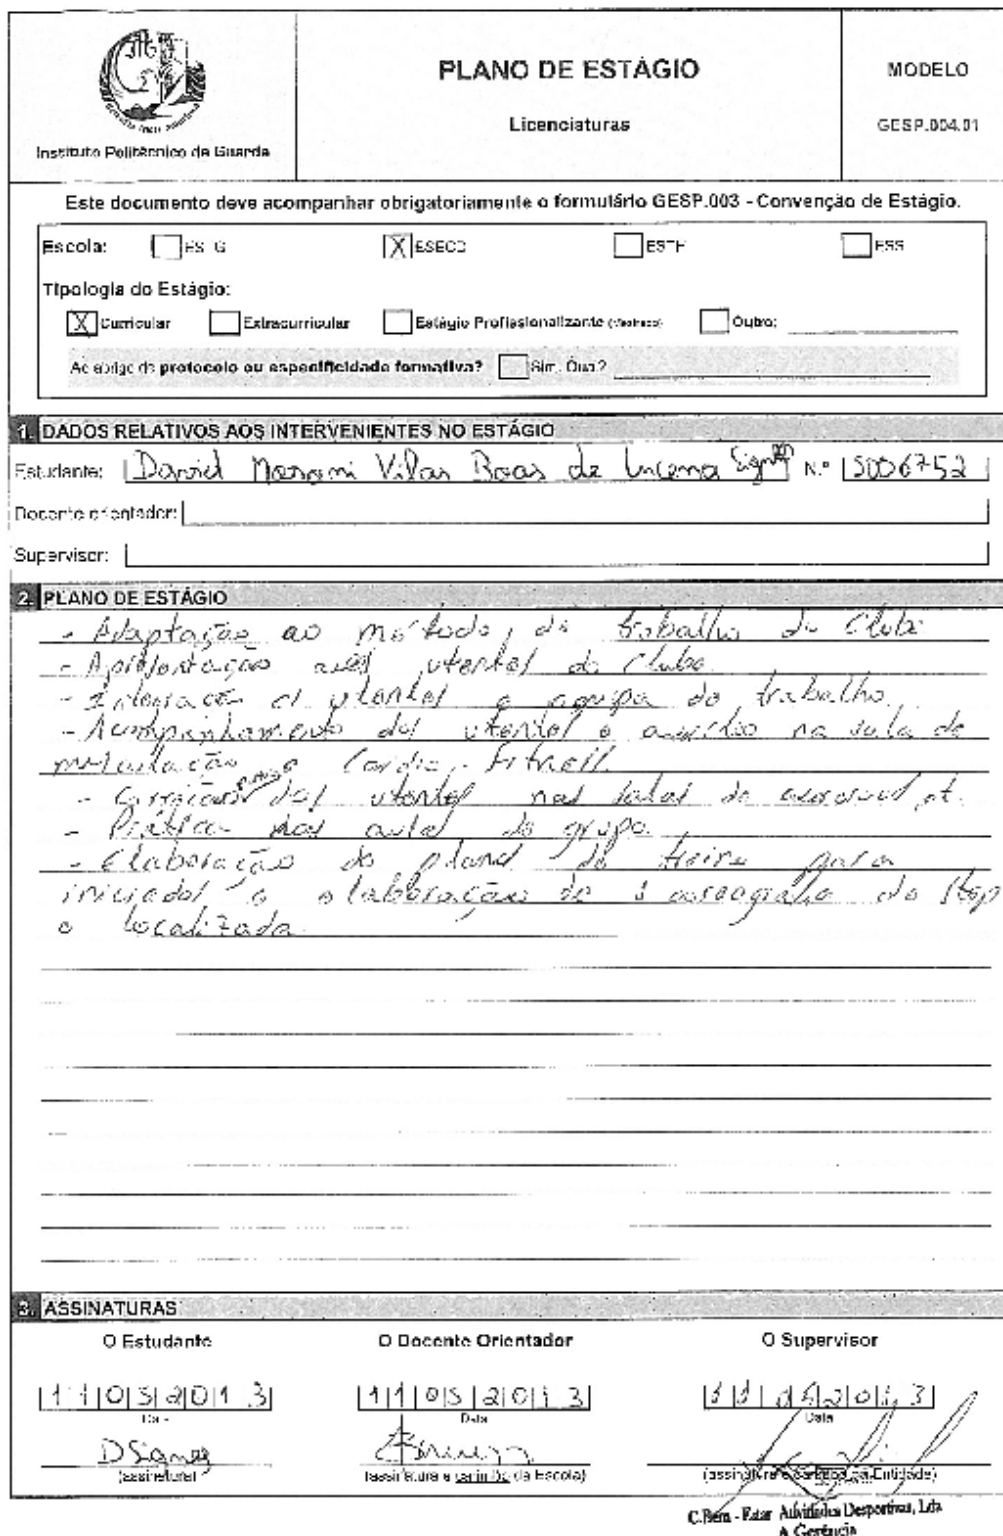 PLANO DE ESTÁGIO
Licenciaturas
MODELO
GESP.004.01
Instituto Politécnico da Guarda
Este documento deve acompanhar obrigatoriamente o formulário GESP.003 - Convenção de Estágio.
Escola: ESTG X ESECD ESTH ESS
Tipologia do Estágio:
X Curricular Extracurricular Estágio Profissionalizante (Mestrado) Outro:
Ao abrigo de protocolo ou especificidade formativa? Sim. Qual?
1. DADOS RELATIVOS AOS INTERVENIENTES NO ESTÁGIO
Estudante: David Vilas Boas de Lucena N.º 5006752
Docente orientador:
Supervisor:
2. PLANO DE ESTÁGIO
- Adaptação ao método de trabalho do Clube
- Apresentação aos utentes do Clube
- Interação c/ utentes e equipa de trabalho.
- Acompanhamento dos utentes e auxílio na sala de
musculação e Cardio-Fitness.
- Correção dos utentes nas salas de
- Prática nas aulas de grupo.
- Elaboração de planos de treino para
iniciados e elaboração de 1 coreografia de Step
e localizada.
3. ASSINATURAS
O Estudante O Docente Orientador O Supervisor
11052013 11052013 11052013
Data Data Data
DSignes
(assinatura) (assinatura e carimbo da Escola) (assinatura e carimbo da Entidade)
C.Bem - Estar Atividades Desportivas, Lda
A Gerência